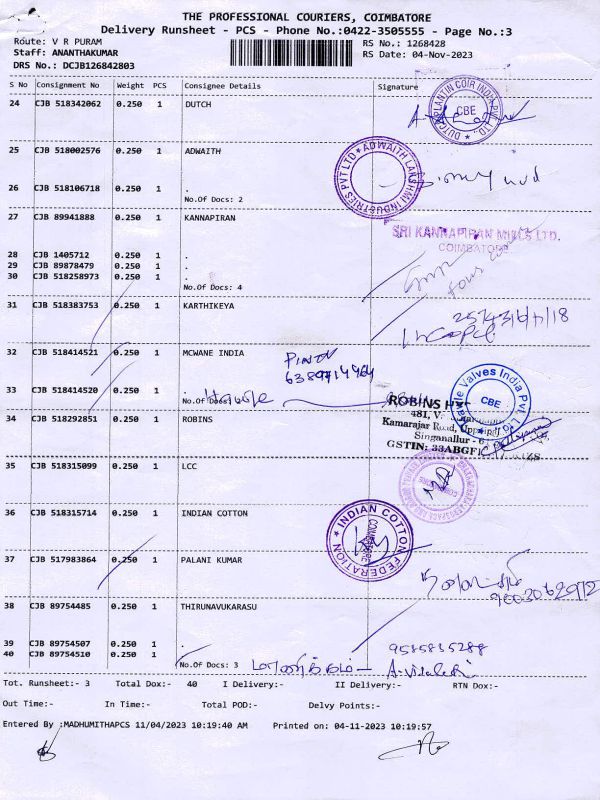 THE PROFESSIONAL COURIERS, COIMBATORE
Delivery Runsheet - PCS - Phone No.:0422-3505555 - Page No.:3
Route: V R PURAM
RS No.: 1268428
Staff: ANANTHAKUMAR
RS Date: 04-Nov-2023
DRS No.: DCJB126842803
S No Consignment No Weight PCS Consignee Details Signature
24 CJB 518342062 0.250 1 DUTCH
CBE
25 CJB 518002576 0.250 1 ADWAITH
ADWAITH LAKSHMI INDUSTRIES PVT LTD
26 CJB 518106718 0.250 1 .
No.Of Docs: 2
27 CJB 89941888 0.250 1 KANNAPIRAN
SRI KANNAPIRAN MILLS LTD.
COIMBATORE
28 CJB 1405712 0.250 1 .
29 CJB 89878479 0.250 1 .
30 CJB 518258973 0.250 1 .
No.Of Docs: 4
31 CJB 518383753 0.250 1 KARTHIKEYA
32 CJB 518414521 0.250 1 MCWANE INDIA
33 CJB 518414520 0.250 1 .
No.Of Docs:
Valves India Pvt. Ltd.
CBE
34 CJB 518292851 0.250 1 ROBINS
ROBINS
481, V.
Kamarajar Road,
Singanallur -
GSTIN: 33ABGF
35 CJB 518315099 0.250 1 LCC
36 CJB 518315714 0.250 1 INDIAN COTTON
INDIAN COTTON FEDERATION
COIMBATORE
37 CJB 517983864 0.250 1 PALANI KUMAR
38 CJB 89754485 0.250 1 THIRUNAVUKARASU
39 CJB 89754507 0.250 1 .
40 CJB 89754510 0.250 1 .
No.Of Docs: 3
9585835288
Tot. Runsheet:- 3 Total Dox:- 40 I Delivery:- II Delivery:- RTN Dox:-
Out Time:- In Time:- Total POD:- Delvy Points:-
Entered By :MADHUMITHAPCS 11/04/2023 10:19:40 AM Printed on: 04-11-2023 10:19:57